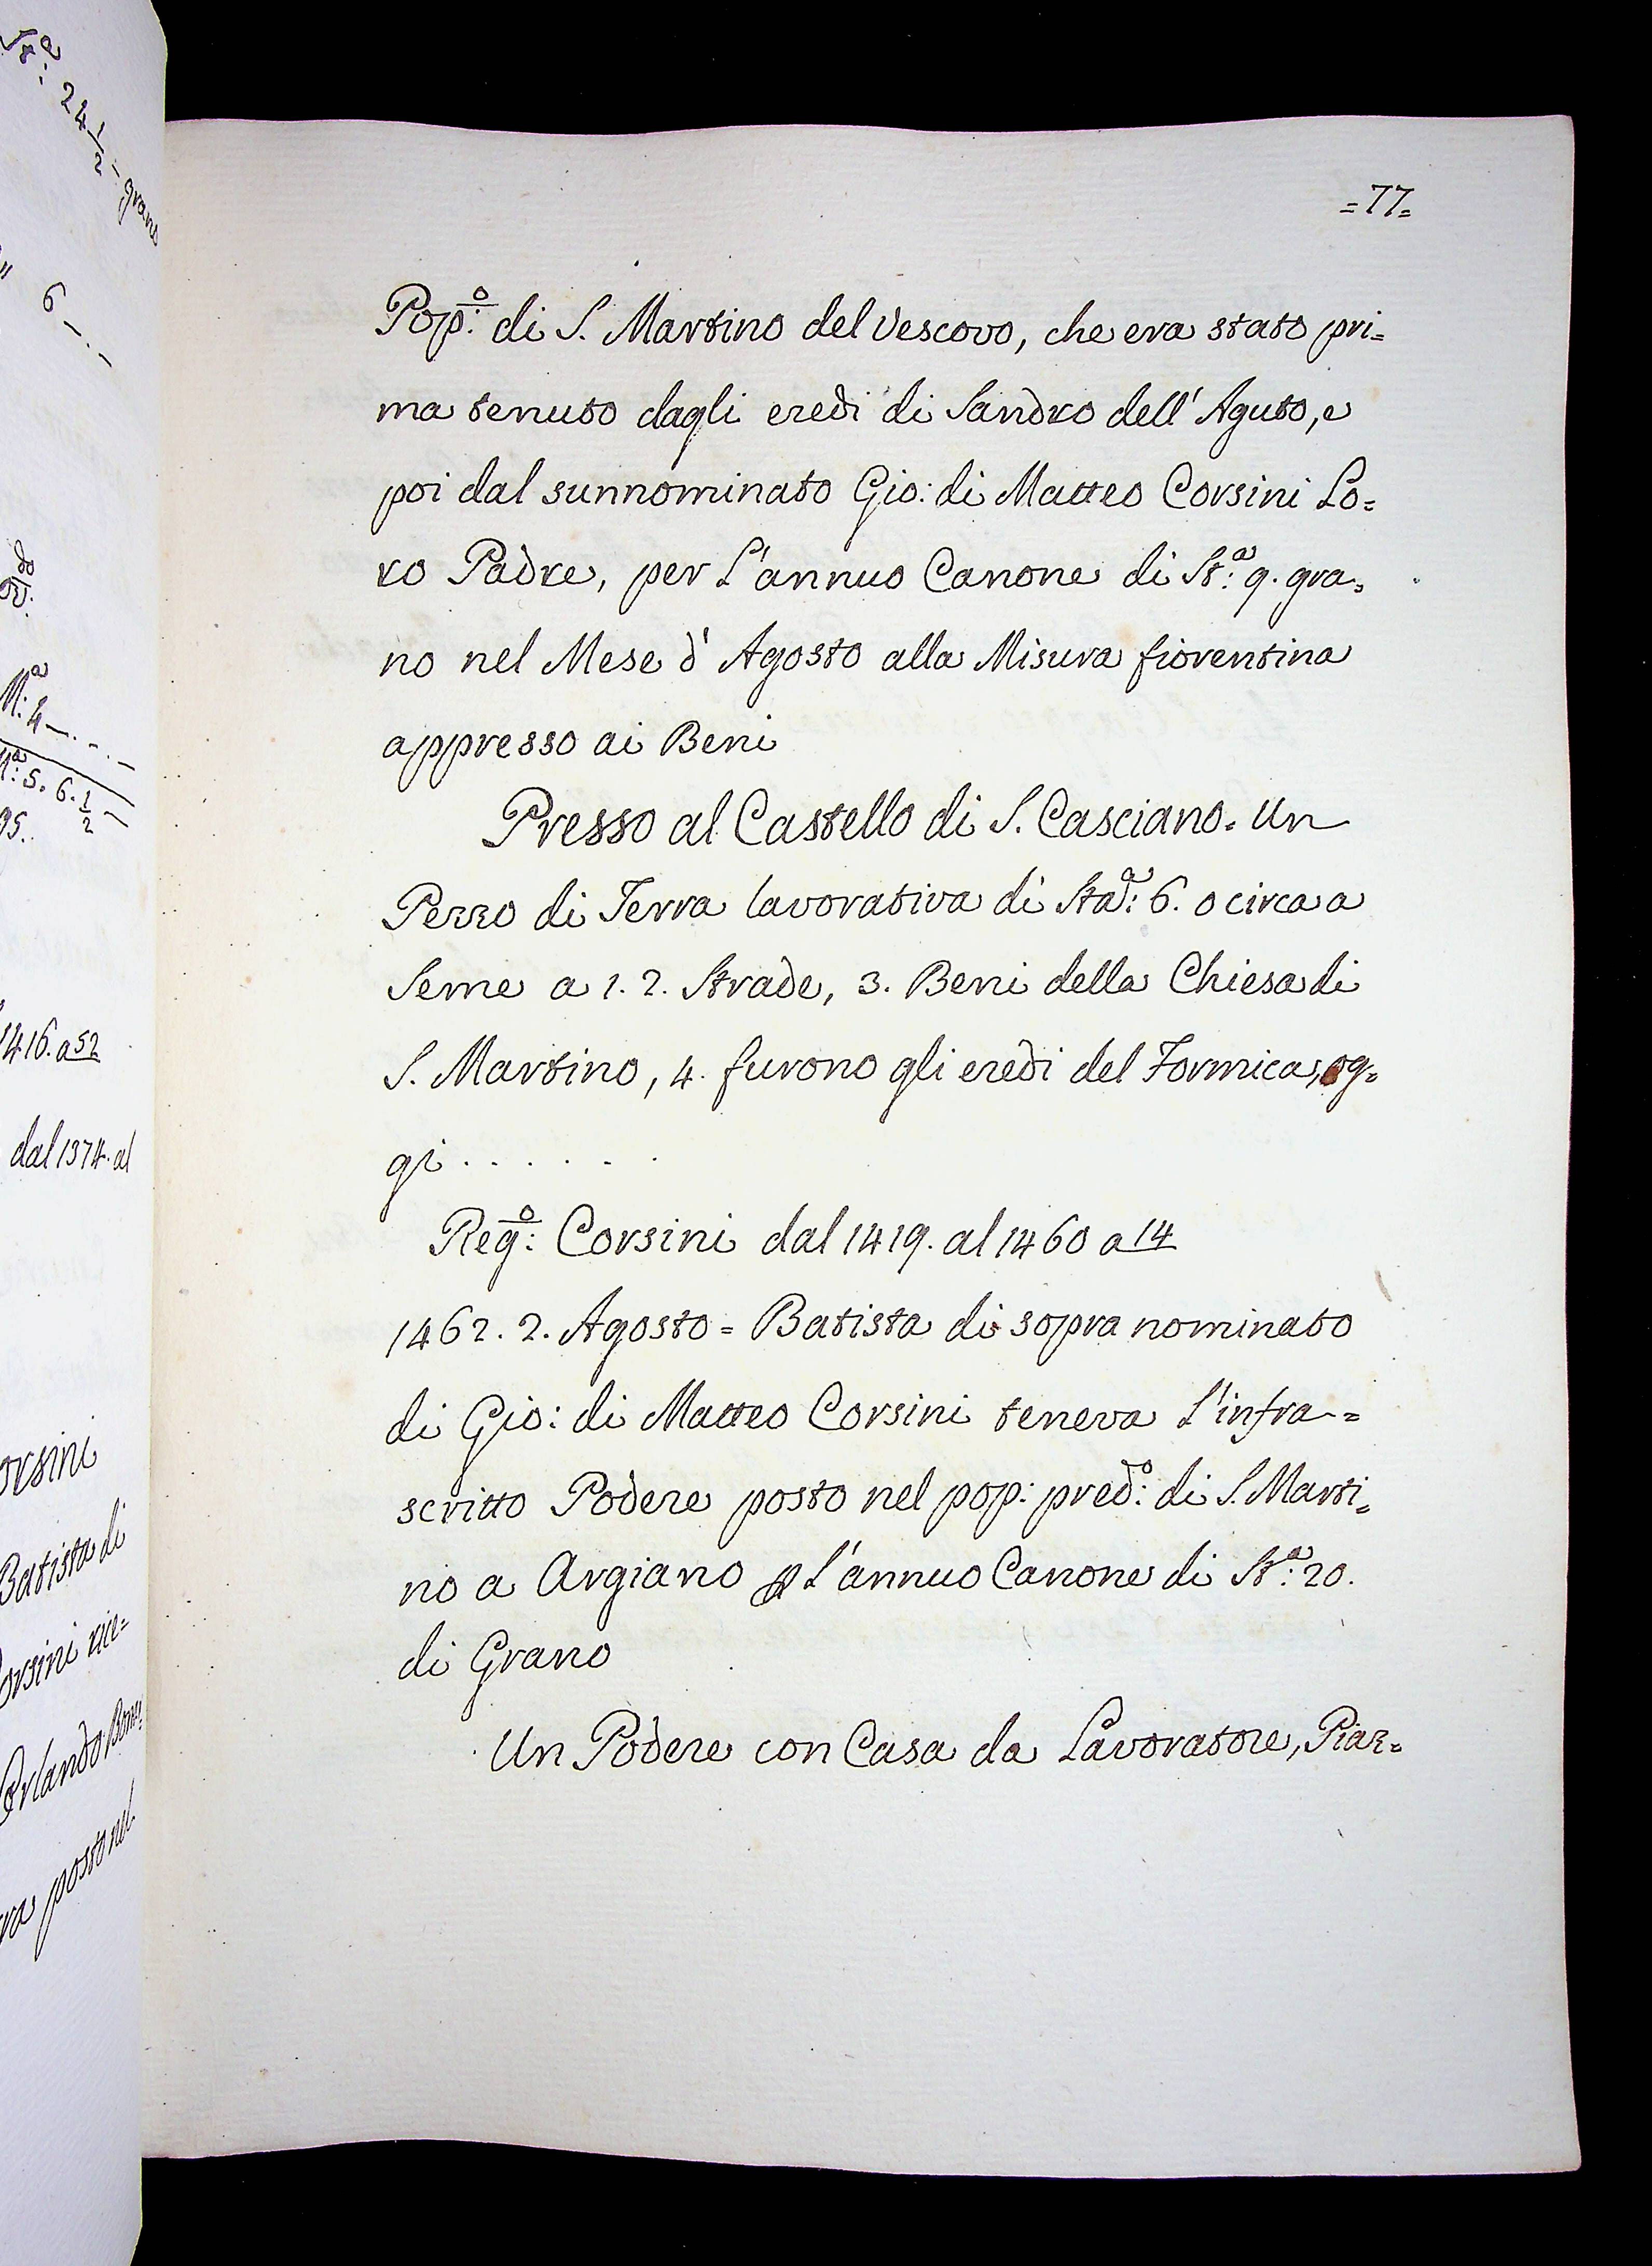 =77=
Pop:º di S. Martino del Vescovo, che era stato pri=
ma tenuto dagli eredi di Sandro dell' Aguto, e
poi dal sunnominato Gio: di Matteo Corsini Lo=
ro Padre, per L'annuo Canone di St:ª 9. gra=
no nel Mese d' Agosto alla Misura fiorentina
appresso ai Beni
Presso al Castello di S. Casciano. Un
Pezzo di Terra lavorativa di Stad:ª 6. o circa a
Seme a 1. 2. Strade, 3. Beni della Chiesa di
S. Martino, 4. furono gli eredi del Formica, og=
gi . . . . . .
Reg:º Corsini dal 1419. al 1460 a 14
1462. 2. Agosto = Batista di sopra nominato
di Gio: di Matteo Corsini teneva L'infra=
scritto Podere posto nel pop: pred:º di S. Marti=
no a Argiano p L'annuo Canone di St:ª 20.
di Grano
Un Podere con Casa da Lavoratore, Piaz=
24 1/2 - grano
6 - . -
1416. a 52
dal 1374. al
Batista di
Orlando
posto nel